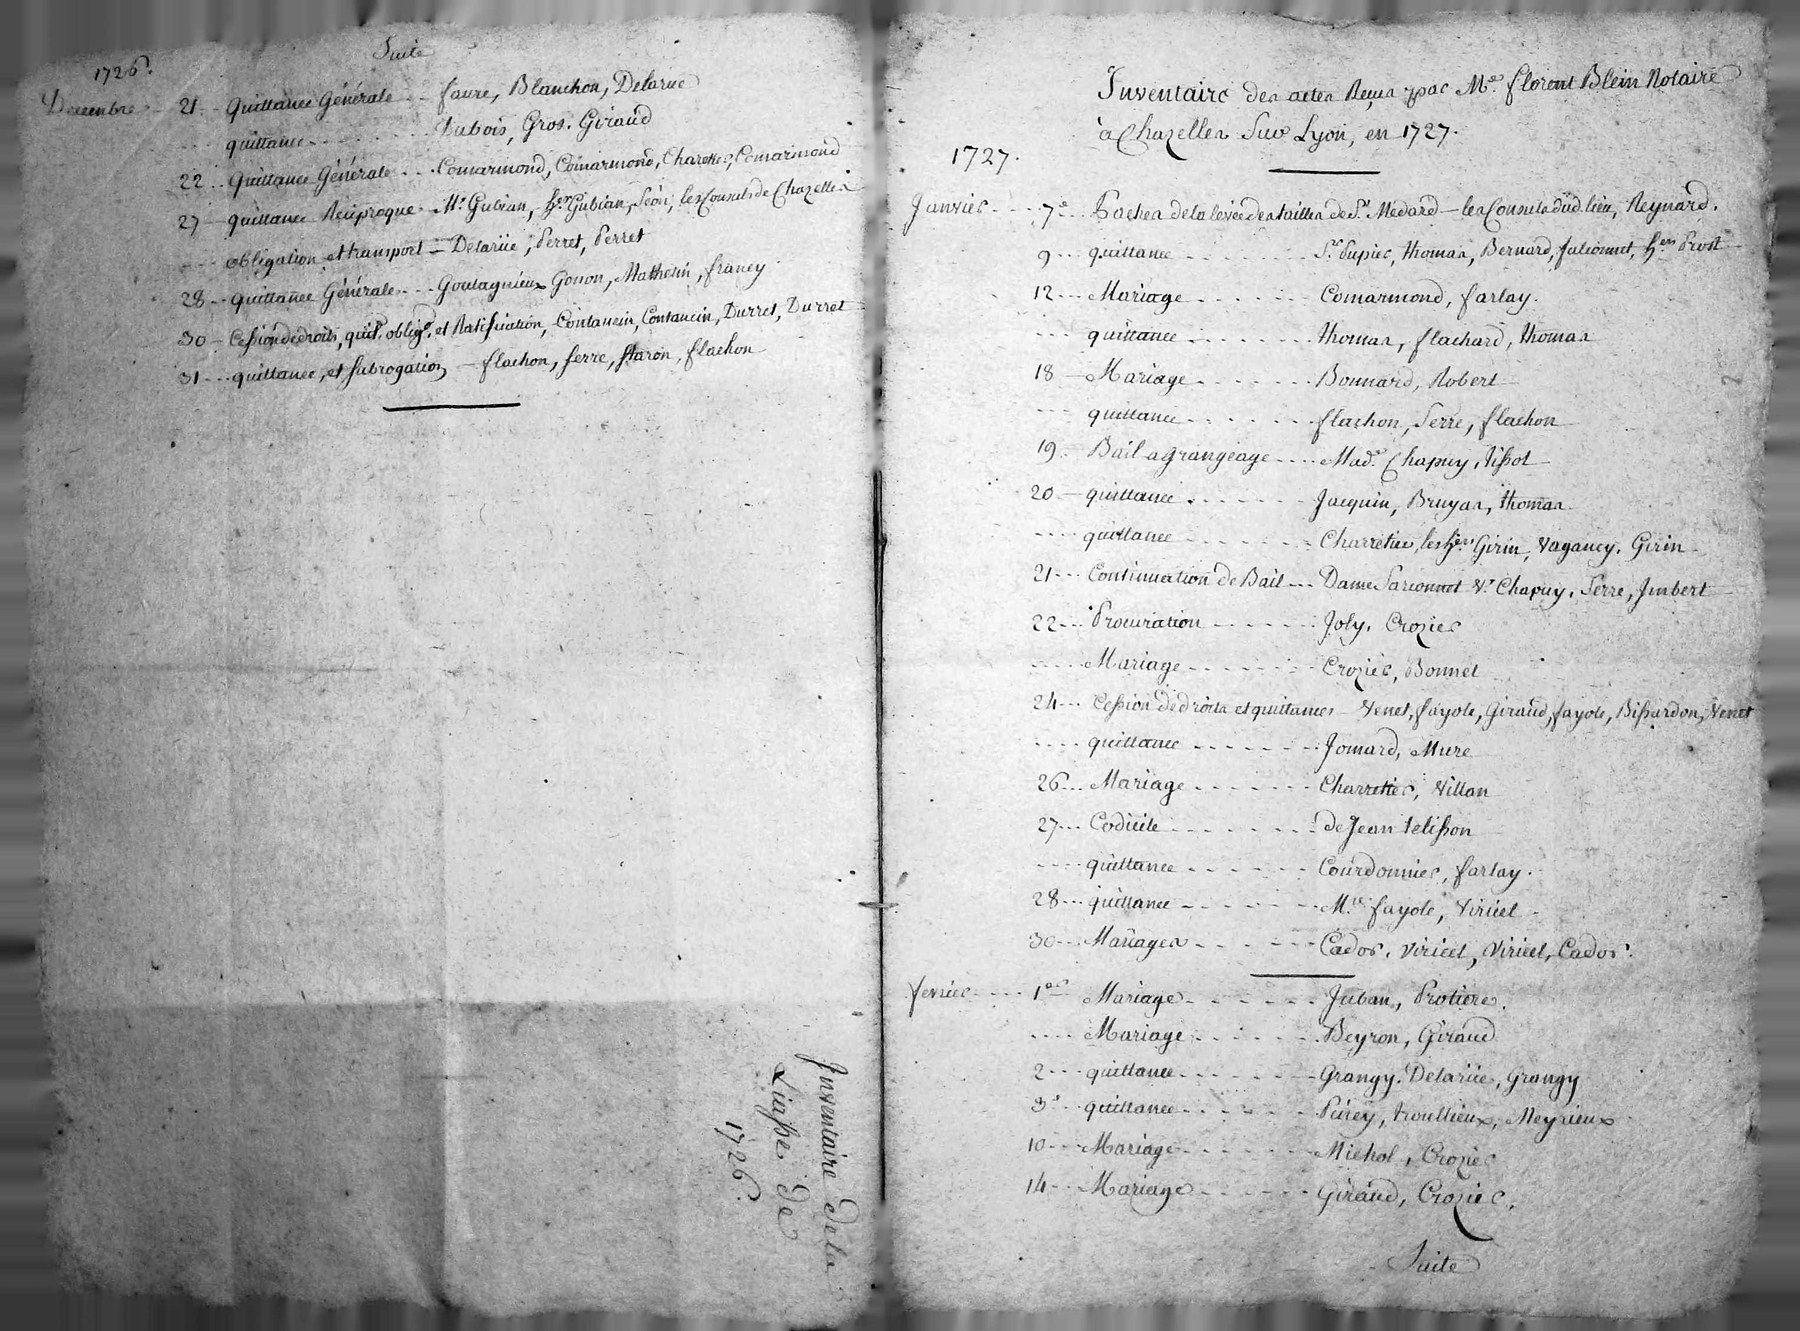 Suite
1726.
Decembre - 21 - Quittance Générale - faure, Blanchon, Delarue
quittance - Dubois, Gros. Giraud
22 - Quittance Générale - Comarmond, Comarmond, Charetier, Comarmond
27 - quittance Reciproque - Mr Gubian, hers Gubian, Séon, les Consuls de Chazelles
obligation et transport - Delarüe, Perret, Perret
28 - quittance Générale - Goutagnieux Gonon, Mathevin, francy
30 - Cession de droits, quit. oblige. et Ratification, Contancin, Contancin, Durret, Durret
31 - quittance, et subrogation - flachon, ferre, flachon
Inventaire de la
Liasse de
1726.
Inventaire des actes Reçus par Me. florent Blein Notaire
à Chazelles Sur Lyon, en 1727.
1727.
Janvier - 7e - Paches de la levée des tailles de St. Medard - les Consuls dud. lieu, Reynard.
9 - quittance - Sr. Pupier, thomas, Bernard, falconnet, hers Prost
12 - Mariage - Comarmond, farlay.
quittance - thomas, flachard, thomas
18 - Mariage - Bonnard, Robert
quittance - flachon, Serre, flachon
19 - Bail a grangeage - Made. Chapuy, Tissot
20 - quittance - Jacquin, Bruyas, thomas
quittance - Charretier, les hers. Girin, Vagancy. Girin
21 - Continuation de Bail - Dame Parionnet Ve. Chapuy, Serre, Jmbert
22 - Procuration - Joly. Crozier
Mariage - Crozier, Bonnet
24 - Cession de droits et quittances - Venet, fayole, Giraud, fayole, Bissardon, Venet
quittance - Jomard, Mure
26 - Mariage - Charretier, Villan
27 - Codicile - de Jean Pelisson
quittance - Courdonnier, farlay.
28 - quittance - Mre. fayole, Viricel
30 - Mariages - Cador. Viricel, Viricel, Cador.
fevrier - 1er - Mariage - Juban, Protiere.
Mariage - Beyron, Giraud
2 - quittance - Grangy. Delarüe, Grangy
3e - quittance - Peirey, troullieux, Meyrieux
10 - Mariage - Michol, Crozier
14 - Mariage - Giraud, Crozier.
Suite